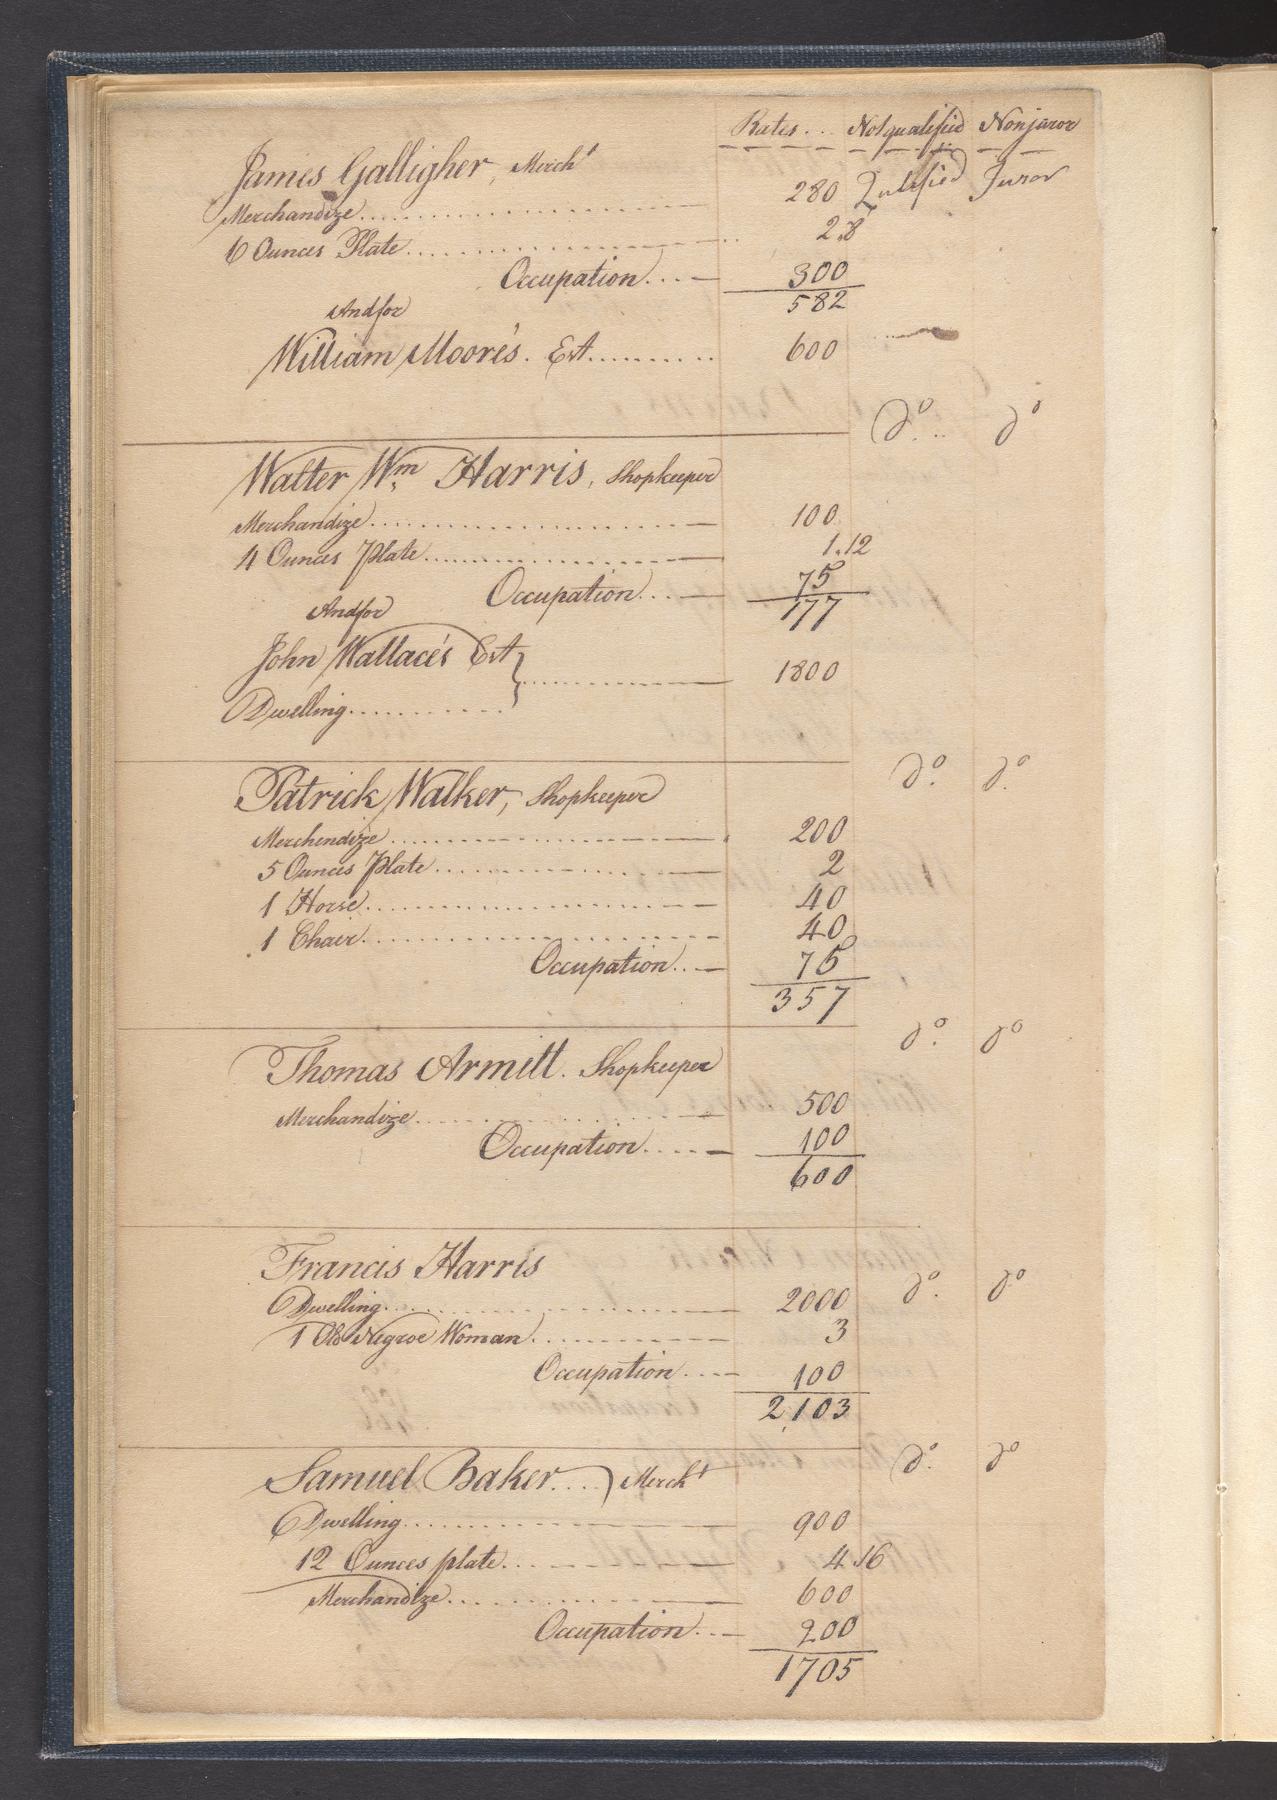 Rates... Notqualified Nonjuror
James Galligher, Merch^t Qualified Juror
Merchandize............ 280
6 Ounces Plate............ 2.8
Occupation.... 300
582
And for
William Moore's. Est.......... 600
d^o... d^o
Walter W^m Harris, Shopkeeper
Merchandize............ 100
4 Ounces Plate............ 1.12
Occupation.... 75
177
And for
John Wallace's Est } ............ 1800
Dwelling............
d^o. d^o.
Patrick Walker, Shopkeeper
Merchendize............ 200
5 Ounces Plate............ 2
1 Horse............ 40
1 Chair............ 40
Occupation... 75
357
d^o. d^o
Thomas Armitt. Shopkeeper
Merchandize............ 500
Occupation..... 100
600
Francis Harris
Dwelling............ 2000 d^o. d^o
1 Old Negroe Woman............ 3
Occupation.... 100
2,103
d^o. d^o
Samuel Baker....} Merch^t
Dwelling............ 900
12 Ounces plate............ 4.16
Merchandize............ 600
Occupation... 200
1705